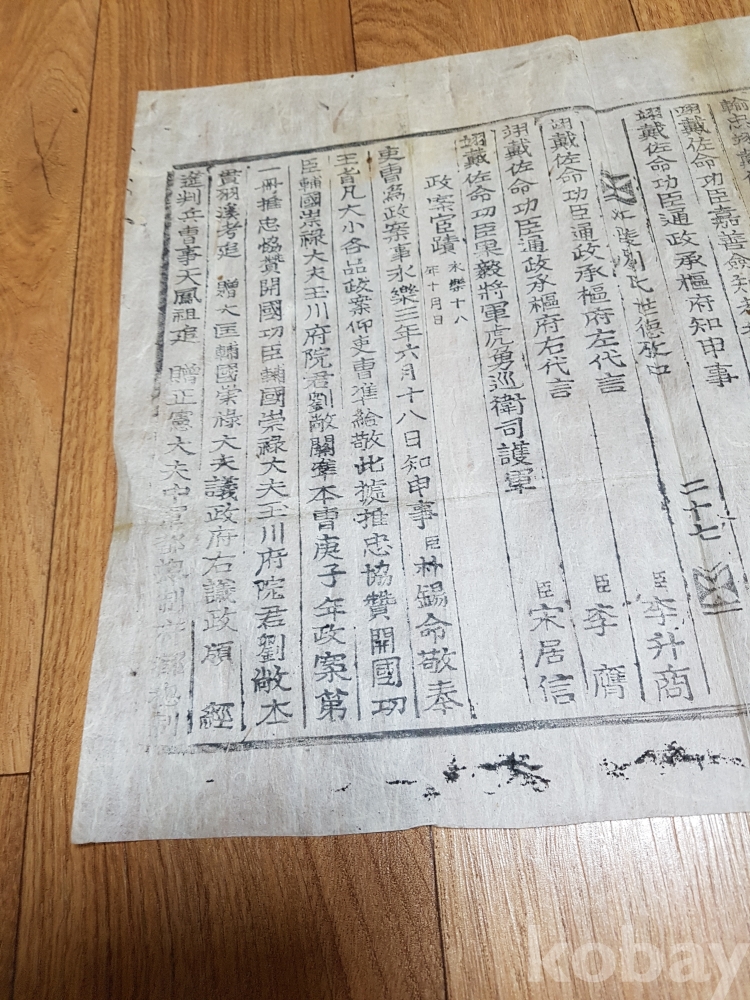 翊戴佐命功臣嘉善僉
翊戴佐命功臣通政承樞府知申事
臣李升商
江陵劉氏世德攷中
二十七
翊戴佐命功臣通政承樞府左代言
臣李膺
翊戴佐命功臣通政承樞府右代言
臣宋居信
翊戴佐命功臣果毅將軍虎勇巡衛司護軍
政案宦蹟永樂十八年十月日
吏曹爲政案事永樂三年六月十八日知申事臣朴錫命敬奉
王旨凡大小各品政案仰吏曹準給敬此據推忠協贊開國功
臣輔國崇祿大夫玉川府院君劉敞關準本曹庚子年政案第
一冊推忠協贊開國功臣輔國崇祿大夫玉川府院君劉敞本
貫羽溪考追贈大匡輔國崇祿大夫議政府右議政 經
兵曹事天鳳祖追贈正憲大夫中軍都摠制
kobay